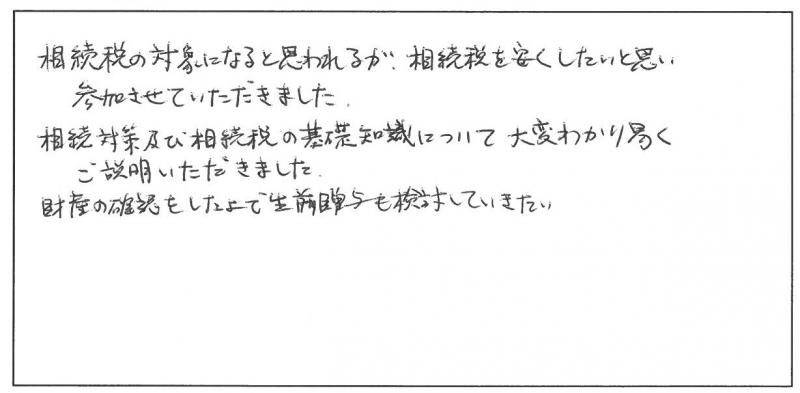 相続税の対象になると思われるが、相続税を安くしたいと思い
参加させていただきました。
相続対策及び相続税の基礎知識について大変わかり易く
ご説明いただきました。
財産の確認をした上で生前贈与も検討していきたい